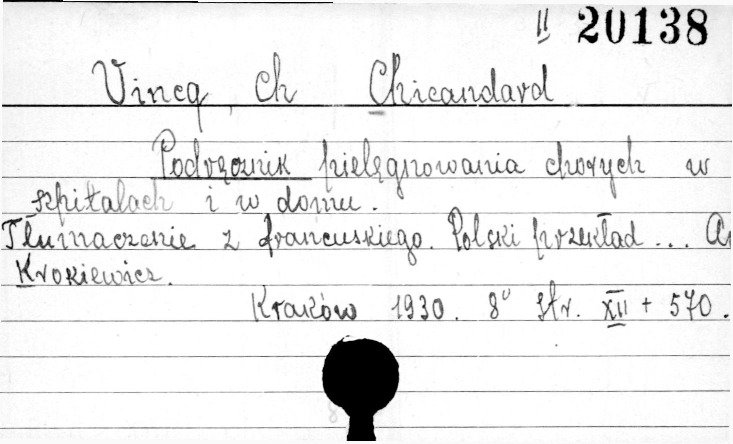 II 20138
Vincq, Ch Chicandard
Podręcznik pielęgnowania chorych w
szpitalach i w domu.
Tłumaczenie z francuskiego. Polski przekład ... A
Krokiewicz.
Kraków 1930. 8° str. XII + 570.